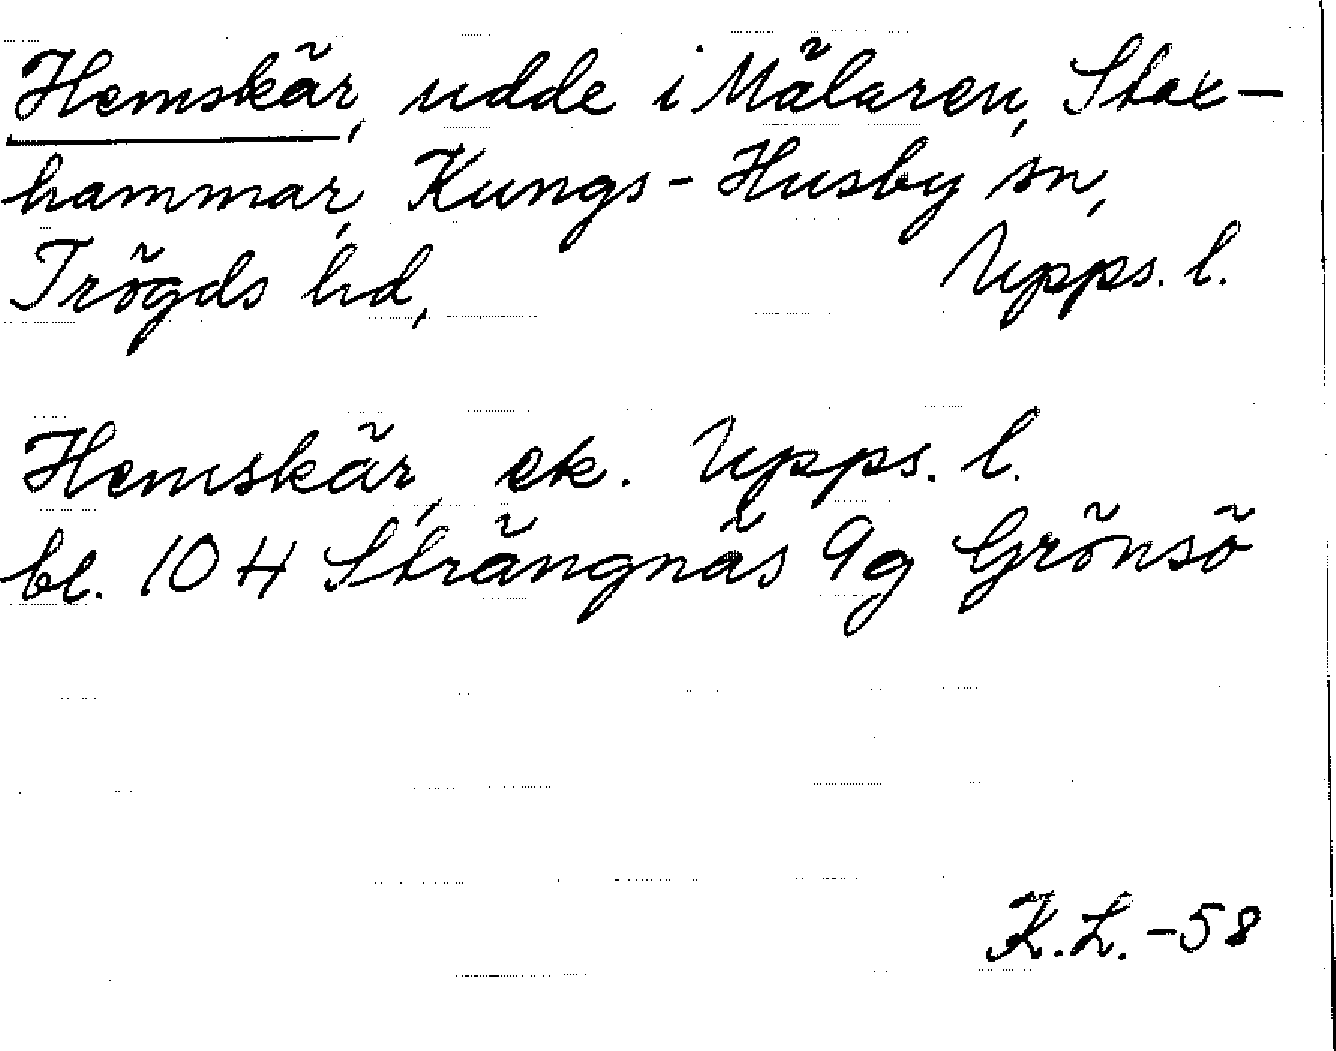 Hemskär, udde i Mälaren, Stax-
hammar, Kungs-Husby sn,
Trögds hd, Upps. l.
Hemskär, ek. Upps. l.
bl. 10 H Strängnäs 9g Grönsö
K.L.-58